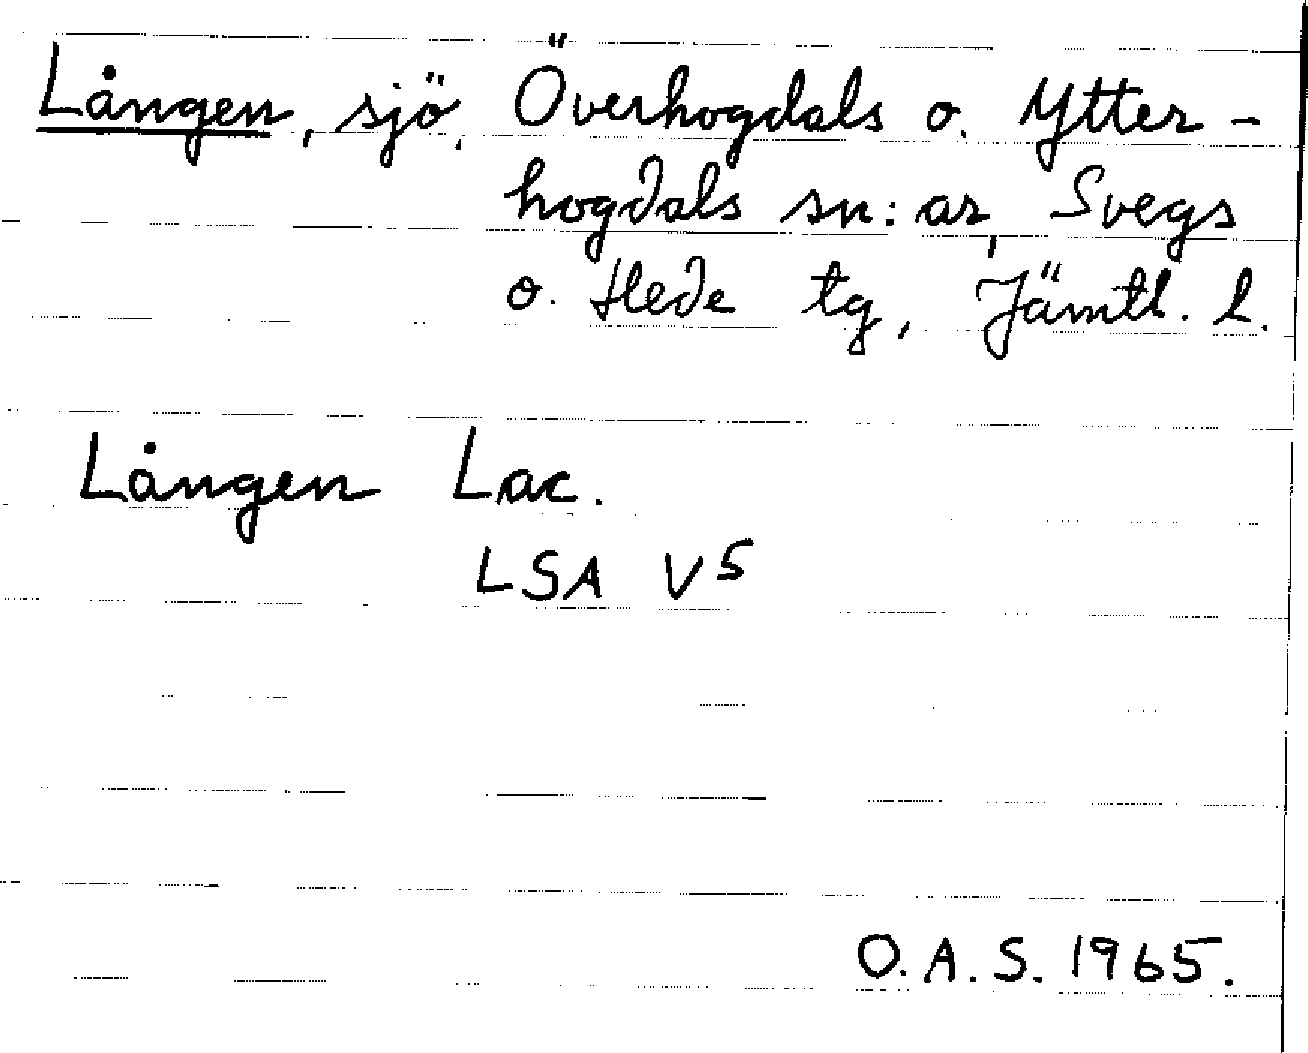 Lången, sjö, Överhogdals o. Ytter-
hogdals sn:ar, Svegs
o. Hede tg, Jämtl. l.
Lången Lac.
LSA V5
O.A.S. 1965.